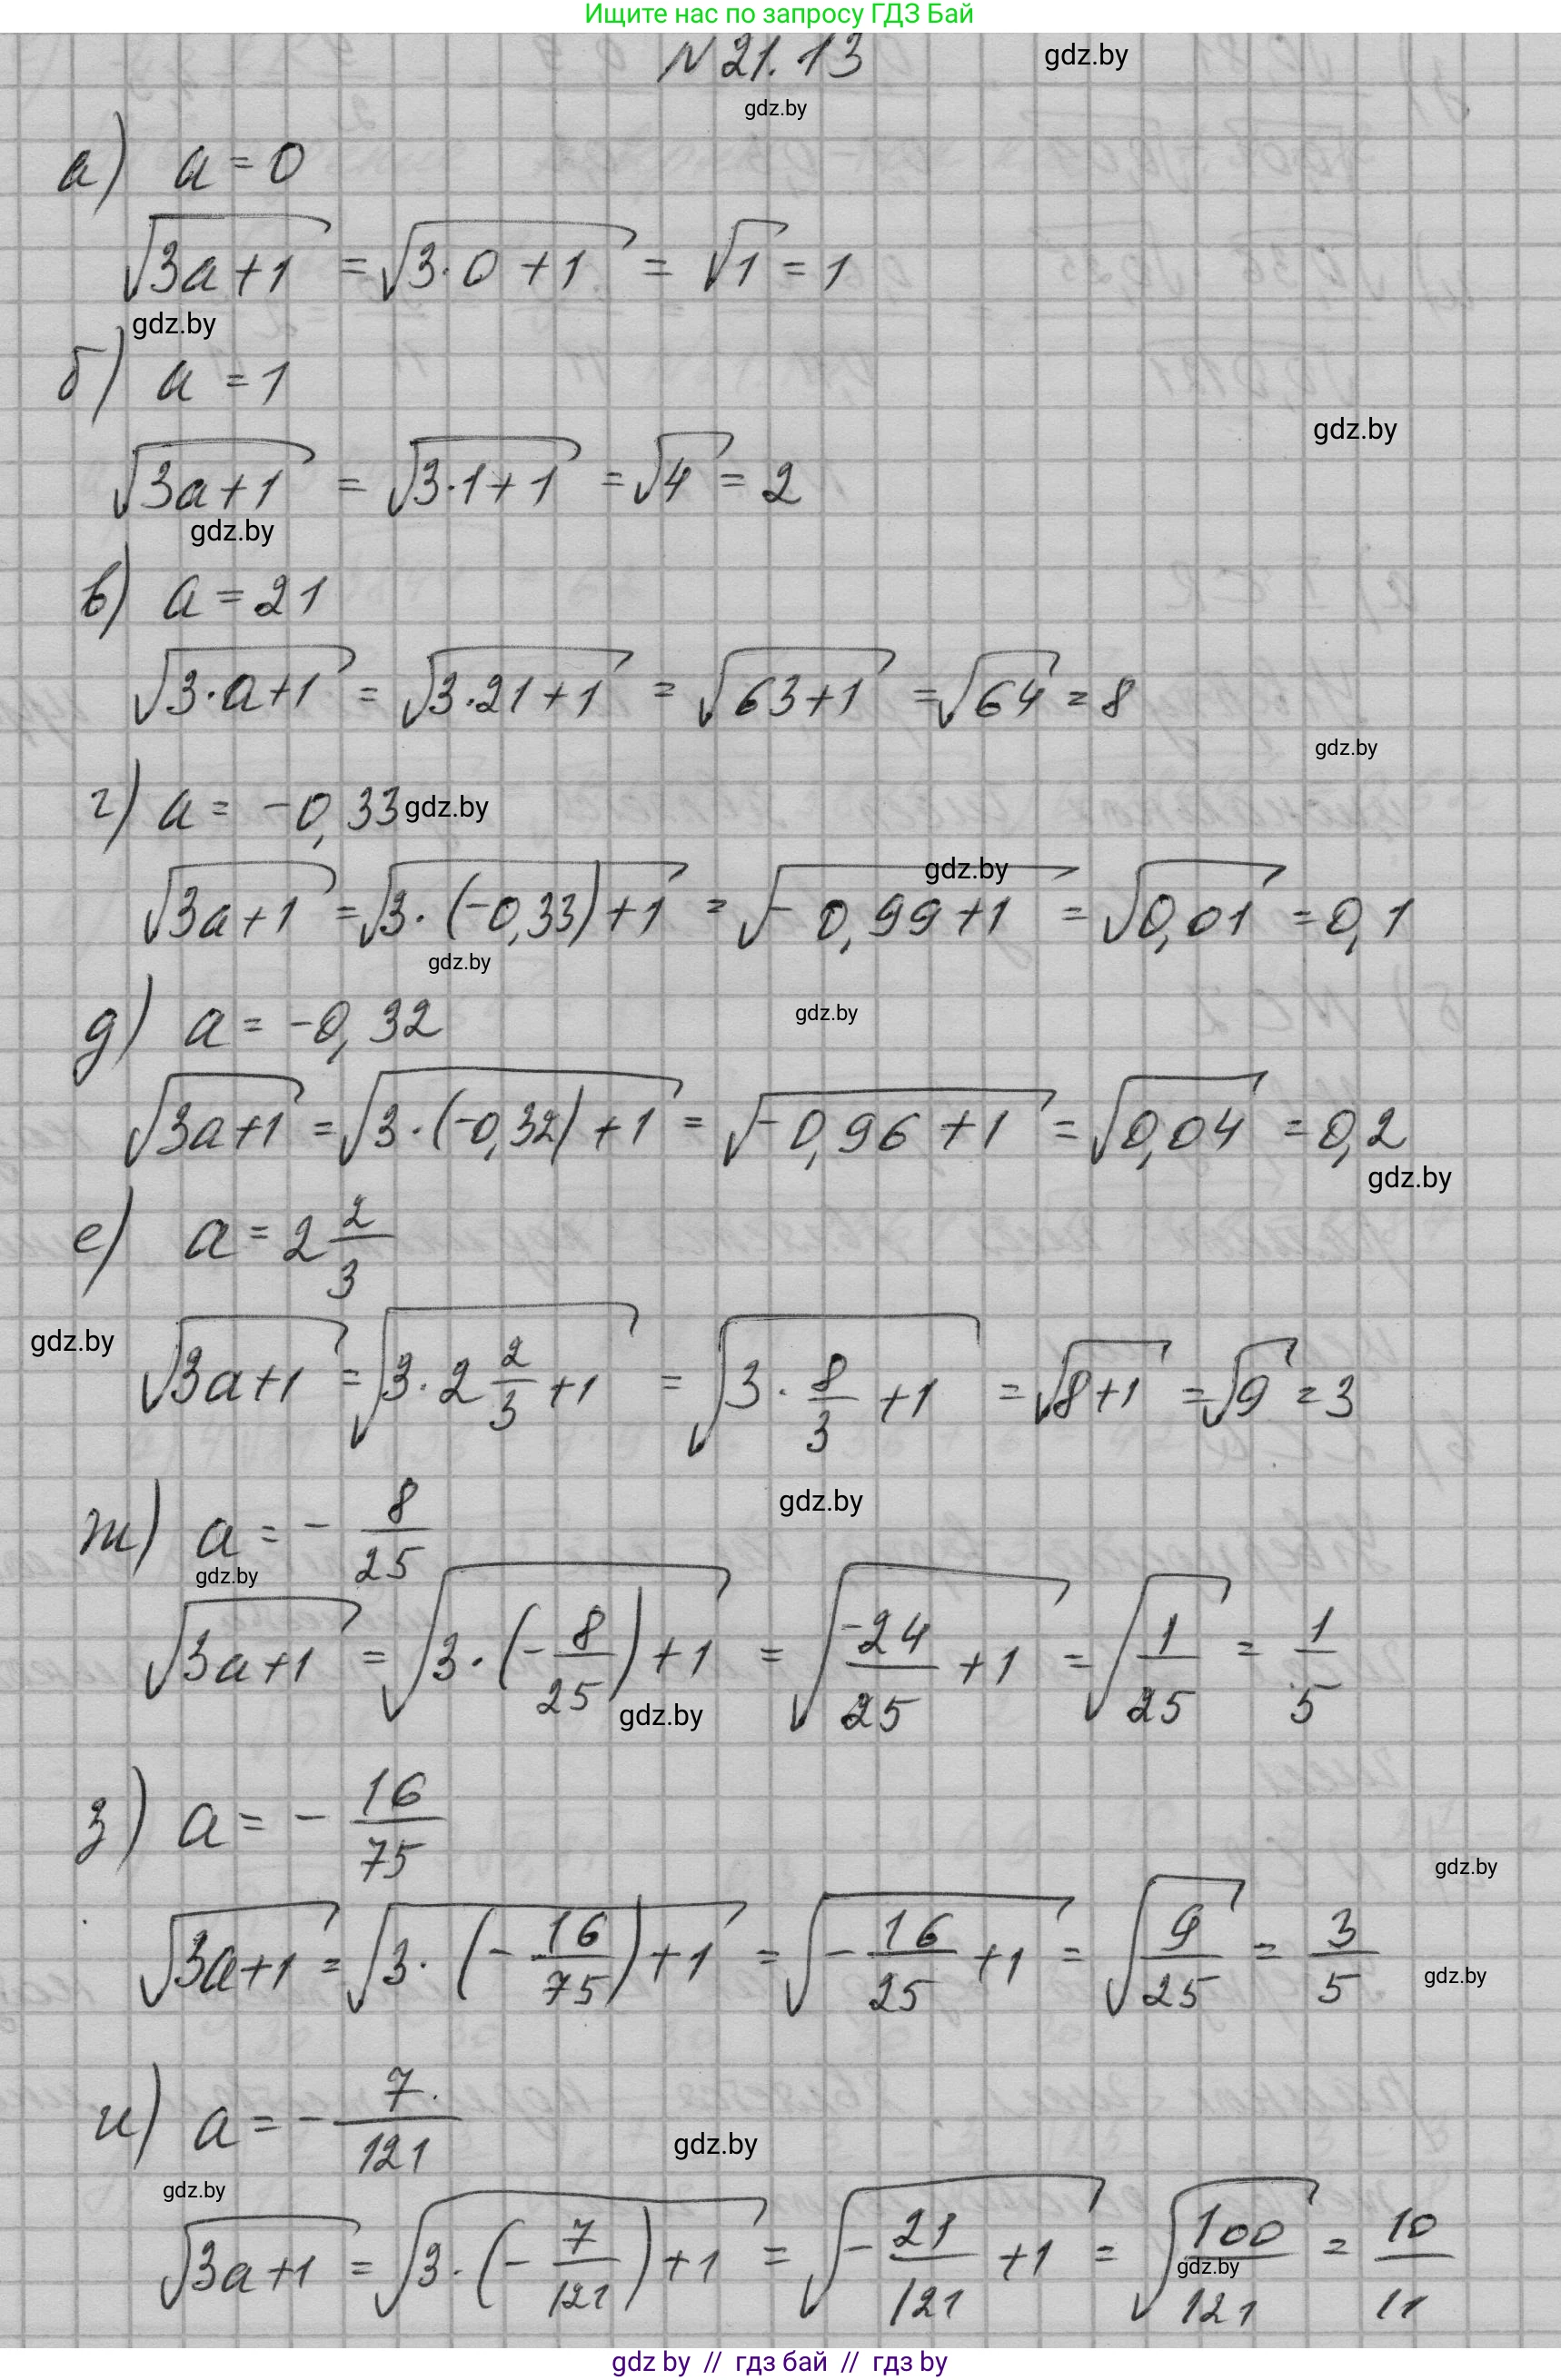 Ищите нас по запросу ГДЗ Бай
N 21.13
gdz.by
gdz.by
а) a = 0
√(3a+1) = √(3·0+1) = √1 = 1
gdz.by
б) a = 1
gdz.by
√(3a+1) = √(3·1+1) = √4 = 2
gdz.by
в) a = 21
√(3·a+1) = √(3·21+1) = √(63+1) = √64 = 8
gdz.by
г) a = -0,33
gdz.by
gdz.by
√(3a+1) = √(3·(-0,33)+1) = √(-0,99+1) = √0,01 = 0,1
gdz.by
gdz.by
д) a = -0,32
√(3a+1) = √(3·(-0,32)+1) = √(-0,96+1) = √0,04 = 0,2
gdz.by
е) a = 2 2/3
gdz.by
√(3a+1) = √(3·2 2/3+1) = √(3·8/3+1) = √(8+1) = √9 = 3
gdz.by
ж) a = - 8/25
gdz.by
√(3a+1) = √(3·(-8/25)+1) = √(-24/25+1) = √(1/25) = 1/5
gdz.by
з) a = - 16/75
gdz.by
√(3a+1) = √(3·(-16/75)+1) = √(-16/25+1) = √(9/25) = 3/5
gdz.by
и) a = - 7/121
gdz.by
gdz.by
√(3a+1) = √(3·(-7/121)+1) = √(-21/121+1) = √(100/121) = 10/11
gdz.by
gdz by // гдз бай // гдз by